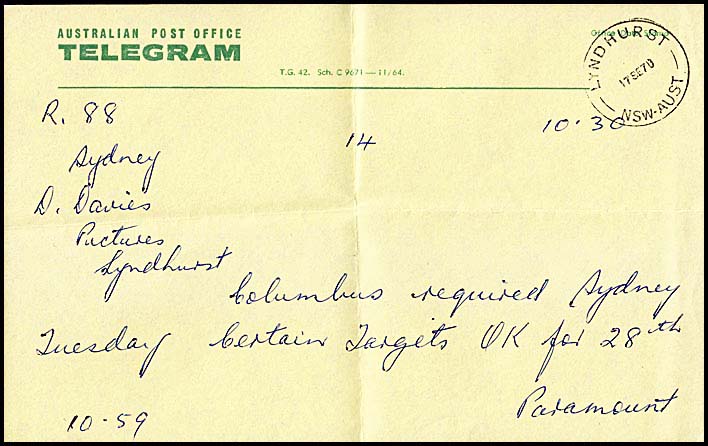 AUSTRALIAN POST OFFICE
TELEGRAM
T.G. 42. Sch. C 9671—11/64.
LYNDHURST
17SE70
NSW-AUST
R. 88
14
10·30
Sydney
D. Davies
Pictures
Lyndhurst
Columbus required Sydney
Tuesday Certain Targets OK for 28th
Paramount
10-59